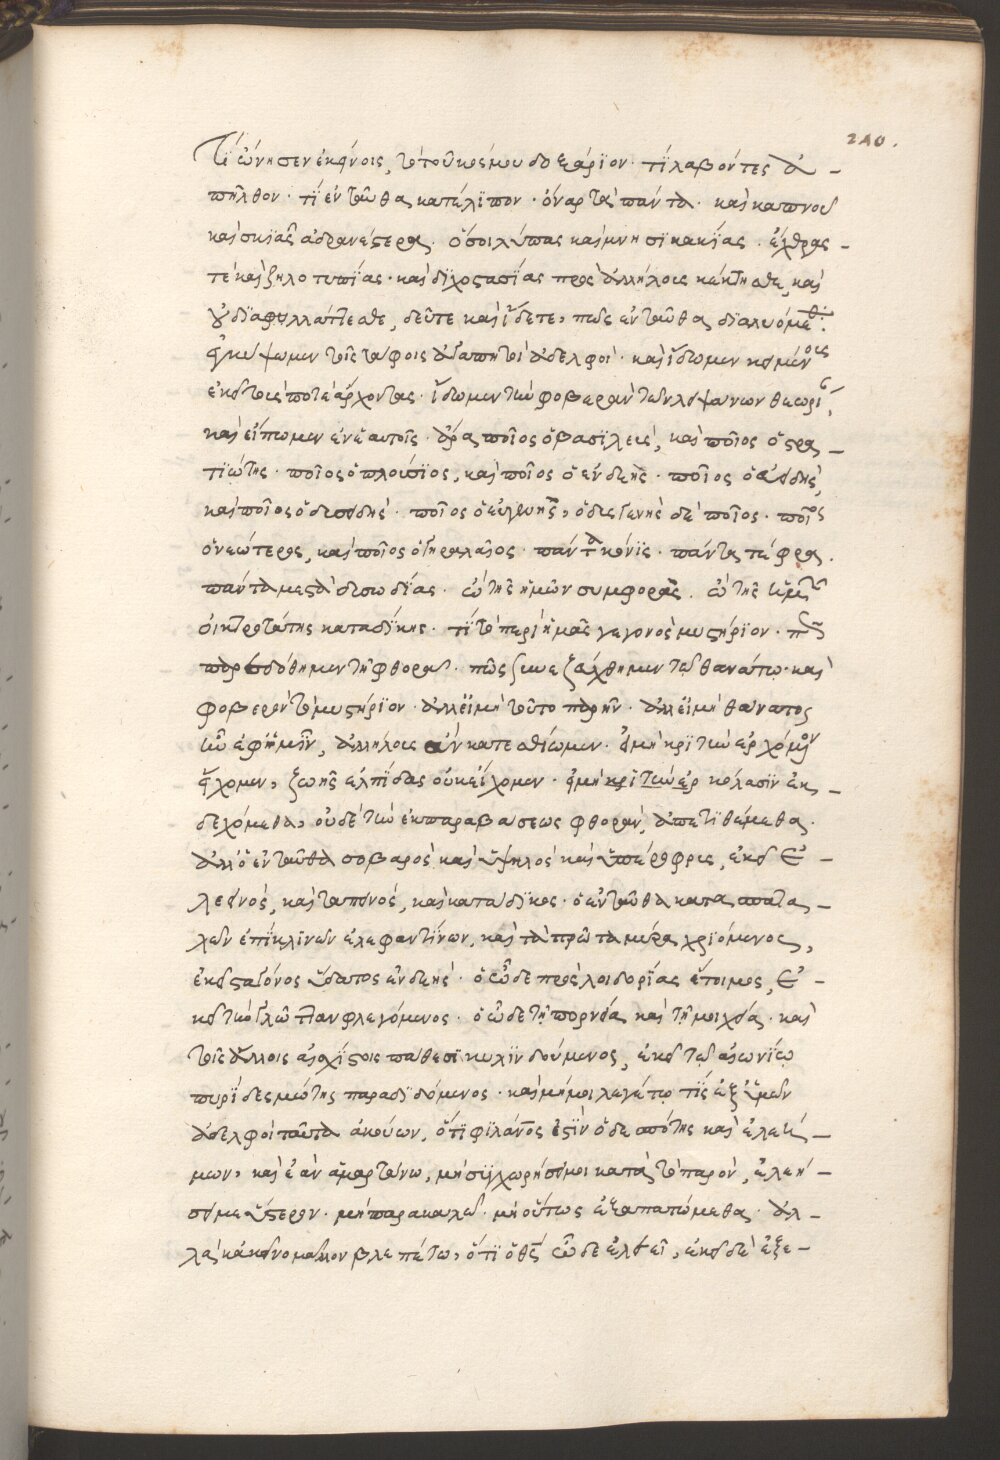 210.
Τί ὤνησεν ἐκείνοις, τὸ τοῦ κόσμου δοξάριον· τί λαβόντες ἀ-
πῆλθον· τί ἐνταῦθα κατέλιπον· ὄναρ τὰ πάντα· καὶ καπνοῦ
καὶ σκιᾶς ἀδρανέστερα. ὅσοι λύπας καὶ μνησικακίας. ἔχθρας-
τὲ καὶ ζηλοτυπίας· καὶ διχοστασίας πρὸς ἀλλήλους κέκτησθε, καὶ
οὐ διαφυλλάττεσθε, δεῦτε καὶ ἴδετε, πῶς ἐνταῦθα διαλυόμεθα·
ἐγκύψωμεν τοῖς τάφοις ἀγαπητοὶ ἀδελφοί· καὶ ἴδωμεν κειμένους
ἐκεῖ τοὺς ποτὲ ἄρχοντας· ἴδωμεν τὴν φοβερὰν τῶν λειψάνων θεωρίαν,
καὶ εἴπωμεν ἐν ἑαυτοῖς· ἆρα ποῖος ὁ βασιλεὺς, καὶ ποῖος ὁ στρα-
τιώτης· ποῖος ὁ πλούσιος, καὶ ποῖος ὁ ἐνδεής· ποῖος ὁ ἀειδὴς,
καὶ ποῖος ὁ δυσειδής· ποῖος ὁ εὐγενὴς, ὁ δυσγενὴς δὲ ποῖος· ποῖος
ὁ νεώτερος, καὶ ποῖος ὁ γηραλαῖος· πάντα κόνις· πάντα τέφρα.
πάντα μεστὰ δυσωδίας. ὢ τῆς ἡμῶν συμφορᾶς. ὢ τῆς ἡμῶν
οἰκτροτάτης καταδίκης· τί τὸ περὶ ἡμᾶς γεγονὸς μυστήριον· πῶς
παρεδόθημεν τῇ φθορᾷ· πῶς συνεζεύχθημεν τῷ θανάτῳ· καὶ
φοβερὸν τὸ μυστήριον· ἀλλ' εἰ μὴ τοῦτο παρῆν· ἀλλ' εἰ μὴ θάνατος
ἦν ἐφ' ἡμῖν, ἀλλήλους ἂν κατεσθίωμεν· εἰ μὴ κριτὴν ἐρχόμενον
εἴχομεν, ζωῆς ἐλπίδας οὐκ εἴχομεν· εἰ μὴ κριτὴν ἐρ κόλασιν ἐκ-
δεχόμεθα, οὐδὲ τὴν ἐκ παραβάσεως φθορὰν, ἀπετιθέμεθα.
ἀλλ' ὁ ἐνταῦθα σοβαρὸς καὶ ὑψηλὸς καὶ ὑπέροφρυς, ἐκεῖ ἐ-
λεεινὸς, καὶ ταπεινὸς, καὶ κατάδικος· ὁ ἐνταῦθα κατασπατα-
λῶν ἐπὶ κλινῶν ἐλεφαντίνων, καὶ τὰ πρῶτα μύρα χριόμενος,
ἐκεῖ σταγόνος ὕδατος ἐνδεής· ὁ ὧδε πρὸς λοιδορίας ἕτοιμος, ἐ-
κεῖ τὴν γλῶτταν φλεγόμενος· ὁ ὧδε τῇ πορνείᾳ καὶ τῇ μοιχείᾳ· καὶ
τοῖς ἄλλοις αἰσχίστοις πάθεσι κυλινδούμενος, ἐκεῖ τῷ αἰωνίῳ
πυρὶ δεσμώτης παραδιδόμενος· καὶ μή μοι λεγέτω τὶς ἐξ ὑμῶν
ἀδελφοὶ ταῦτα ἀκούων, ὅτι φιλάνος ἐστὶν ὁ δεσπότης καὶ ἐλεή-
μων, καὶ ἐὰν ἁμαρτάνω, μὴ συγχωρήσει μοι κατὰ τὸ παρὸν, ἐλεή-
σει με ὕστερον· μὴ παρακαλῶ· μὴ οὕτως ἐξαπατώμεθα· ἀλ-
λὰ κἀκεῖνο μᾶλλον βλεπέτω, ὅτι ὁ θς ὧδε ἐλεεῖ, ἐκεῖ δὲ ἐξε-